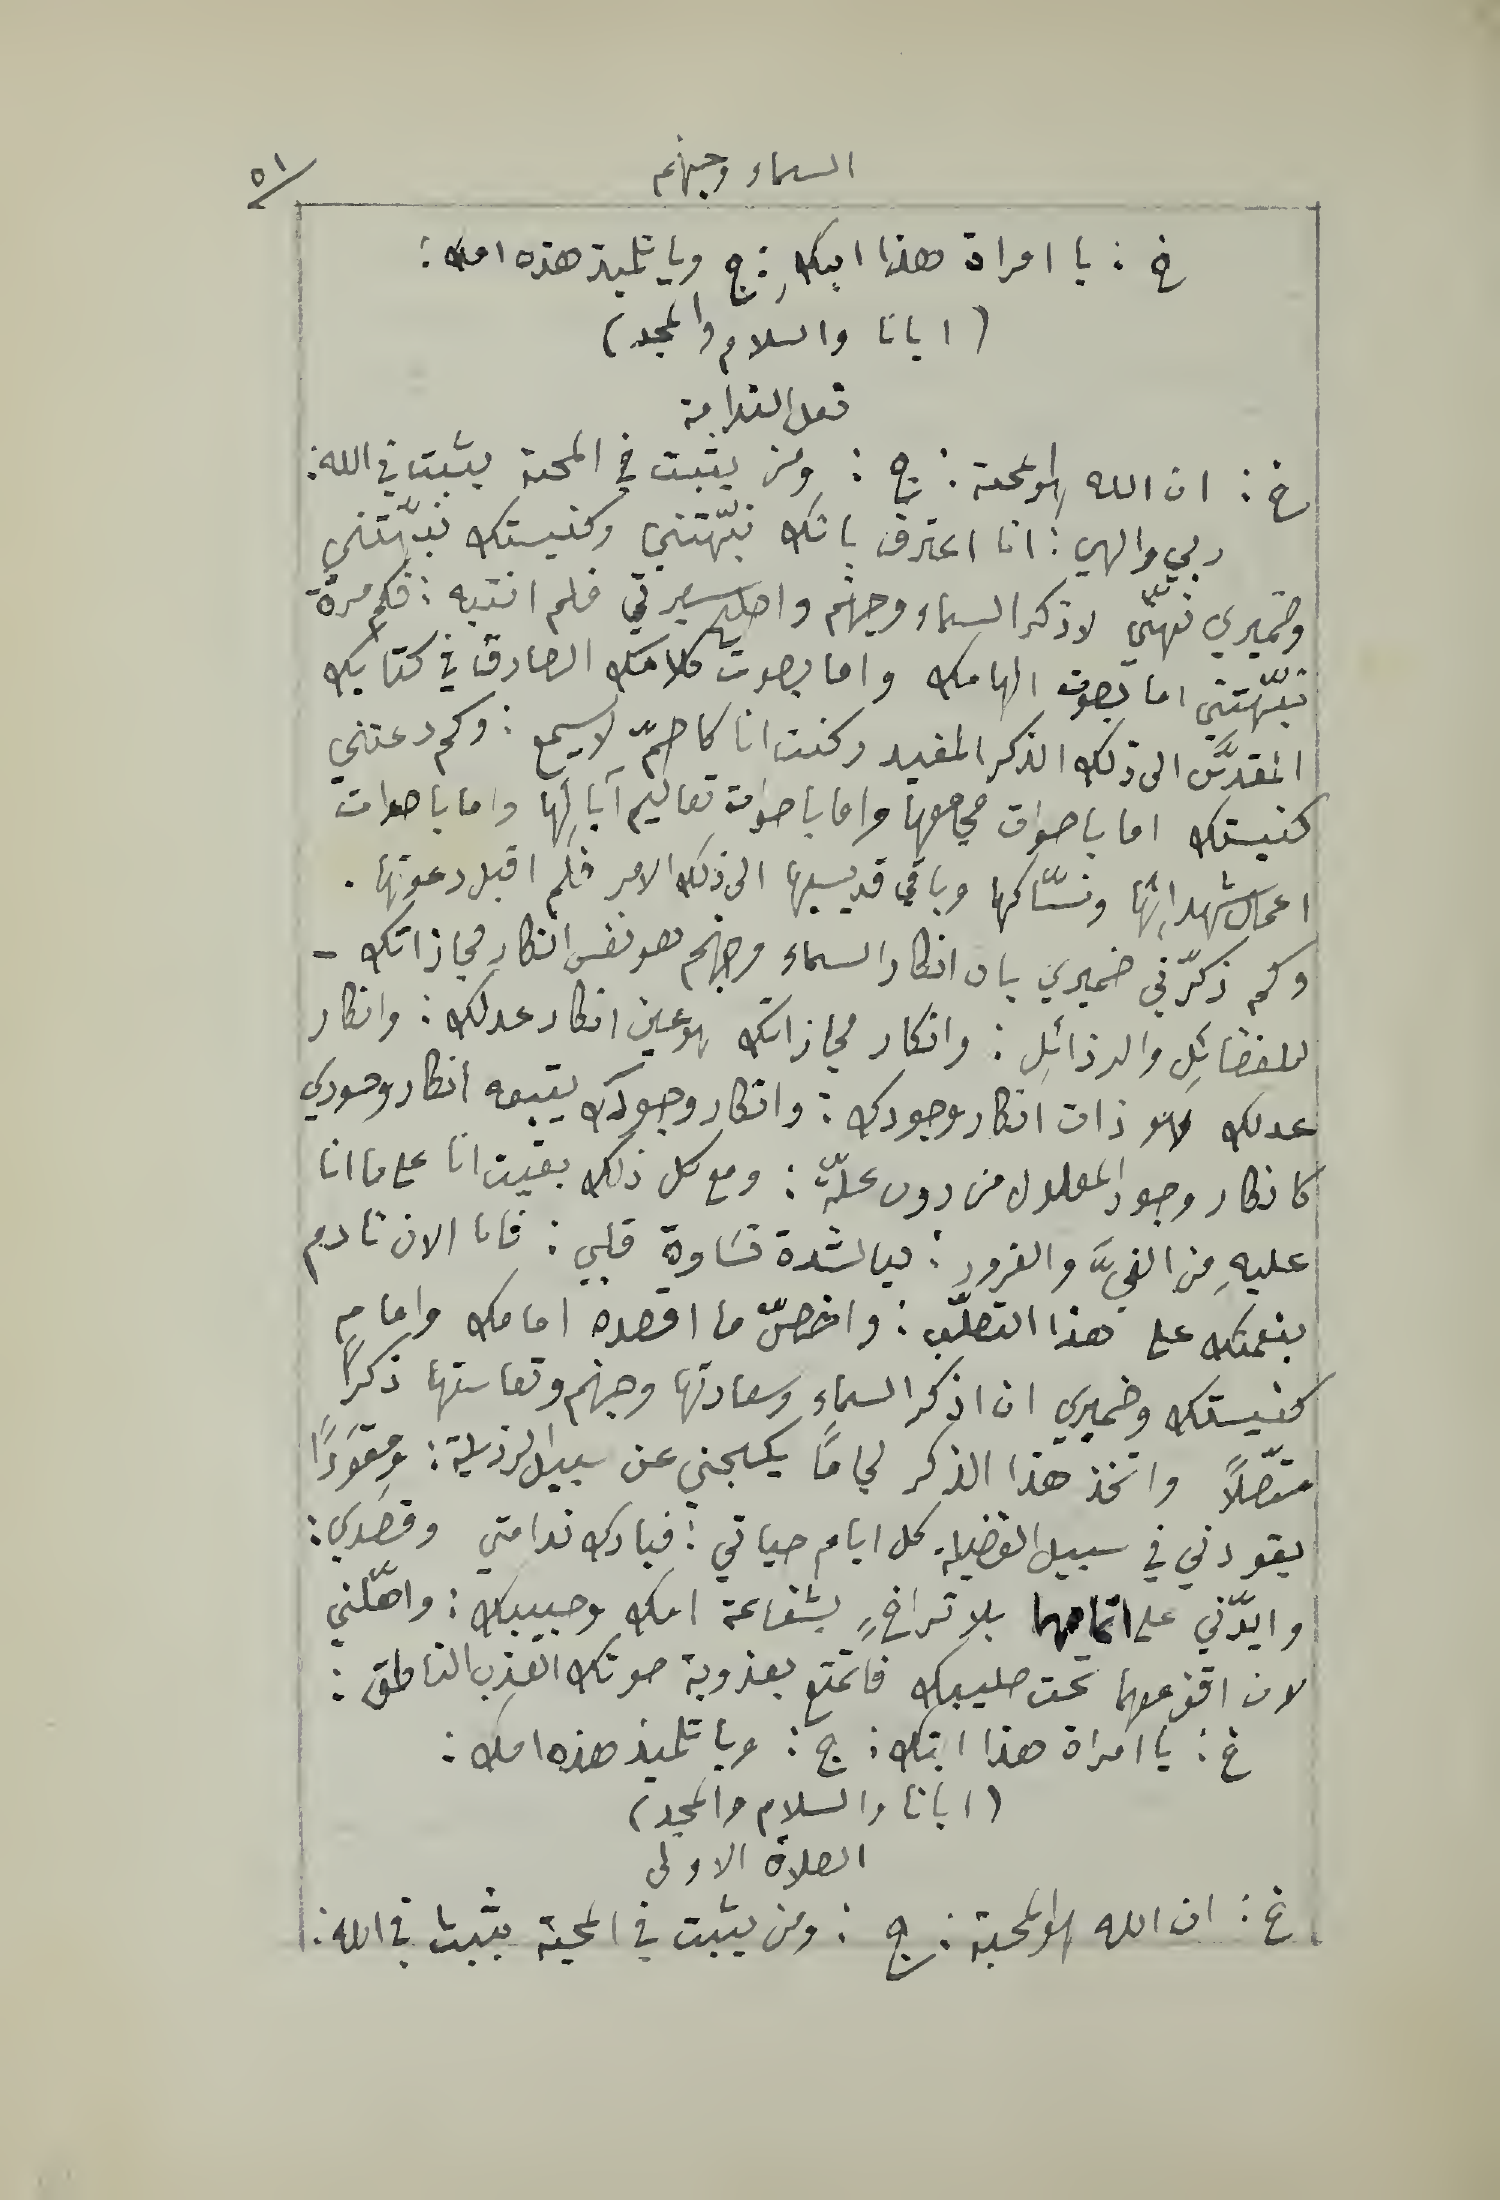 السماء وجهنم
٥١
خ : يا امراة هذا ابنكِ : ج ويا تلميذ هذه امك :
( ابانا والسلام والمجد )
فعل الندامة
خ : ان الله هو المحبة : ج : ومن يثبت في المحبة يثبت في الله :
ربي والهي : انا اعترف بانك نبّهتني وكنيستك نبّهتني
وضميري نبّهني لاذكر السماء وجهنم واصلح سيرتي فلم انتبه : فكم مرة
نبّهتني اما بصوت الهامك واما بصوت كلامك الصادق في كتابك
المقدَّس الى ذلك الذكر المفيد وكنت انا كاصمّ لا يسمع : وكم دعتني
كنيستك اما باصوات مجامعها واما باصوات تعاليم آبائها واما باصوات
اعمال شهدائها ونسّاكها وباقي قديسيها الى ذلك الامر فلم اقبل دعوتها .
وكم ذكرّني ضميري بان انكار السماء وجهنم هو نفس انكار مجازاتك -
للفضائِل والرذائِل : وانكار مجازاتك هو عين انكار عدلك : وانكار
عدلك لهو ذات انكار وجودك : وانكار وجودك يتبعه انكار وجودي
كانكار وجود المعلول من دون علّة : ومع كل ذلك بقيت انا على ما انا
عليهِ من الغيّ والغرور : فيا لشدة قسَاوة قلبي : فانا الان نادم
بنعمتك على هذا التصلّب : واخصّ ما اقصده امامك وامام
كنيستك وضميري ان اذكر السماء وسعادتها وجهنم وتعاستها ذكرًا
متصّلاً واتخذ هذا الذكر لجامًا يكبحني عن سبيل الرذيلة : ومِقوَدًا
يقودني في سبيل الفضيلة كل ايام حياتي : فبارك ندامتي وقصدي :
وايدّني على اتمامهما بلا تراخٍ بشفاعة امك وحبيبك : واهّلني
لان اقف معهما تحت صليبك فاتمتع بعذوبة صوتك العذب الناطق :
خ : يا امراة هذا ابنك : ج : ويا تلميذ هذه امك :
( ابانا والسلام والمجد )
الصلاة الاولى
خ : ان الله هو المحبة : ج : ومن يثبت في المحبة يثبت في الله :